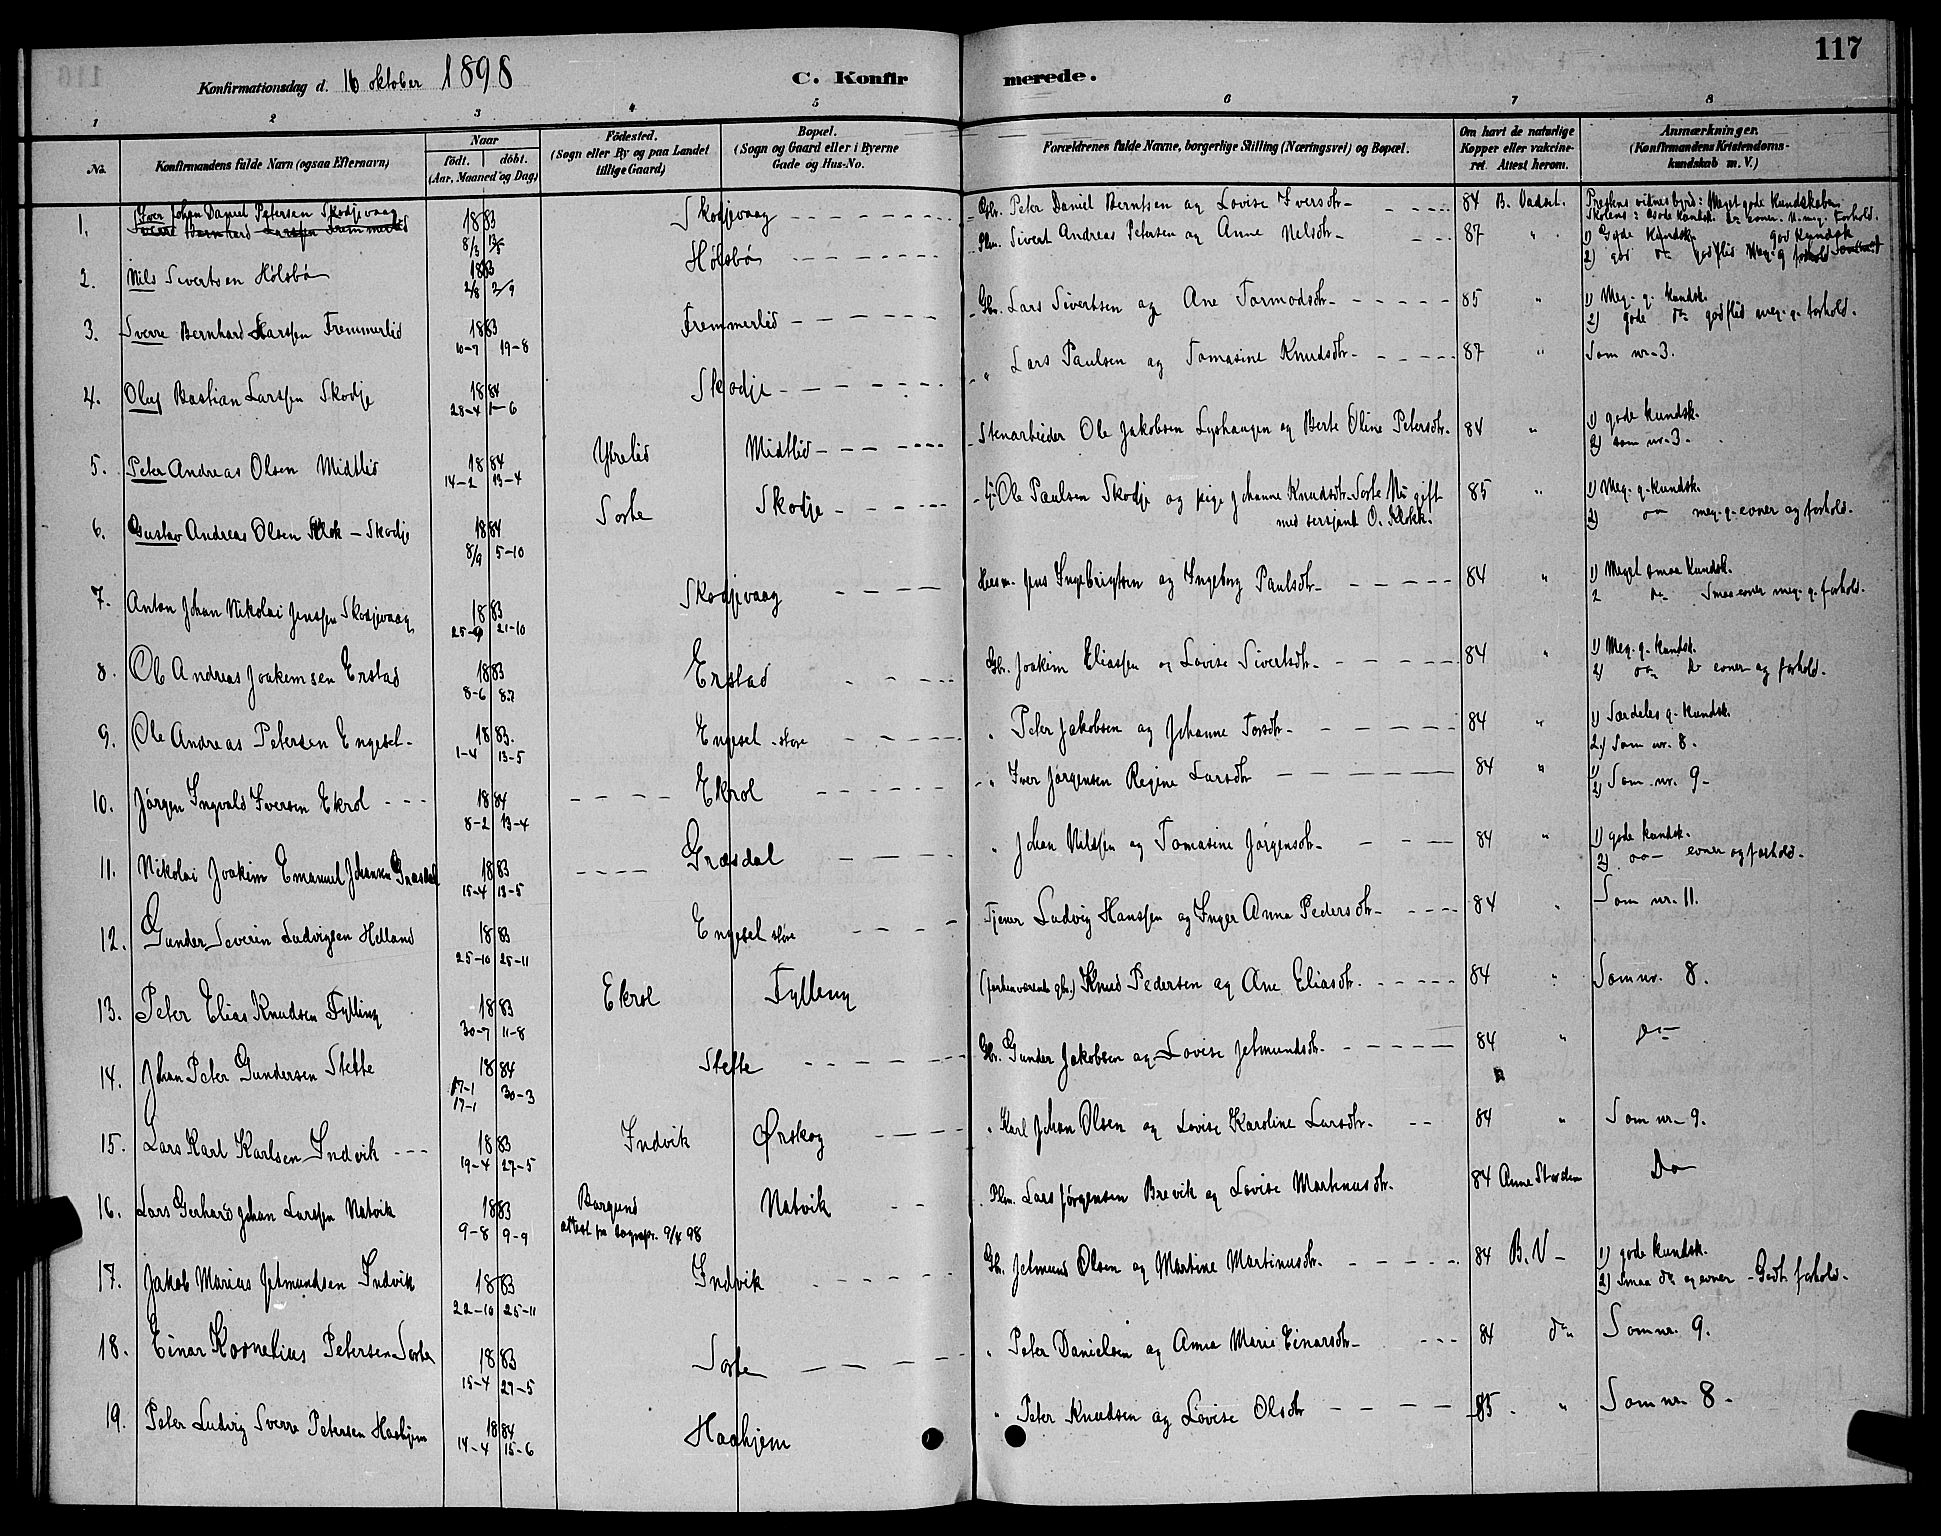 117
Konfirmationsdag d. 16 oktober 1898 C. Konfirmerede.
1 2 3 4 5 6 7 8
No. Konfirmandens fulde Navn (ogsaa Efternavn) Naar födt. döbt. (Aar, Maaned og Dag) Födested. (Sogn eller By og paa Landet tillige Gaard) Bopæl. (Sogn og Gaard eller i Byerne Gade og Hus-No. Forældrenes fulde Navne, borgerlige Stilling (Næringsvei) og Bopæl. Om havt de naturlige Kopper eller vakcineret. Attest herom. Anmærkninger. (Konfirmandens Kristendomskundskab m. V.)
1. Iver Johan Daniel Petersen Skodjevaag 1883 8/3 13/5 Skodjevaag Gbr. Peter Daniel Berntsen og Lovise Iversdtr. 84 B. Vadset. Prestens vidnesbyrd: Meget gode Kundskaber
Sverre Bernhard Larssen Fremmerlid
2. Nils Sivertsen Holsbø 1883 2/8 2/9 Holsbø Plm. Sivert Andreas Petersen og Anne Nelsdtr. 87 " 1) Gode Kundsk.
2) god do godflid Meg. g. forhold
3. Sverre Bernhard Larssen Fremmerlid 1883 10-7 19-8 Fremmerlid Gbr. Lars Sivertsen og Ane Tormodsdtr. 85 " 1) Meg. g. kundsk.
2) gode do godflid meg. g. forhold.
4. Oluf Bastian Larssen Skodje 1884 28-4 1-6 Skodje " Lars Paulsen og Tomasine Knudsdtr. 87 " Som nr. 3.
5. Peter Andreas Olsen Midtlid 1884 14-2 13-4 Ytrelid Midtlid Stenarbeider Ole Jakobsen Lyshaugen og Berte Oline Petersdtr. 84 " 1) gode kundsk.
2) som nr. 3.
6. Gustav Andreas Olsen Klok - Skodje 1884 8/9 5-10 Sorte Skodje Ole Paulsen Skodje og pige Johanne Knudsdtr. Sorte Nu gift 85 " 1) Meg. g. kundsk.
med sersjant O. Klokk. 2) do meg. g. evner og forhold.
7. Anton Johan Nikolai Jenssen Skodjevaag 1883 25-9 21-10 Skodjevaag Husm. Jens Ingebrigtsen og Ingeborg Paulsdtr. 84 " 1) Meget smaa Kundsk.
2 do Smaa evner meg. g. forhold.
8. Ole Andreas Joakimsen Erstad 1883 8-6 8-7 Erstad Gbr. Joakim Eliassen og Lovise Sivertsdtr. 84 " 1) Meg. g. kundsk.
2) do do evner og forhold.
9. Ole Andreas Petersen Engeset 1883. 1-4 13-5 Engeset store " Peter Jakobsen og Johanne Torsdtr. 84 " 1) Særdeles g. Kundsk.
2.) Som nr. 8.
10. Jørgen Ingvald Iversen Ekrol 1884 8-2 13-4 Ekrol " Iver Jørgensen Regine Larsdtr 84 " 1) 2) Som nr. 9
11. Nikolai Joakim Emanuel Johansen Græsdal 1883 15-4 13-5 Græsdal " Johan Nilssen og Tomasine Jørgensdtr. 84 " 1) gode kundsk.
2) do evner og forhold.
12. Gunder Severin Ludvigsen Helland 1883 25-10 25-11 Engeset store Tjener Ludvig Hanssen og Inger Anna Pedersdtr. 84 " Som nr. 11.
13. Peter Elias Knudsen Fylling 1883 30-7 11-8 Ekrol Fylling (forhenværende gbr.) Knud Pedersen og Ane Eliasdtr. 84 " Som nr. 8.
14. Johan Peter Gundersen Stette 1884 17-1 30-3 Stette Gbr. Gunder Jakobsen og Lovise Jetmundsdtr. 84 " do
17-1
15. Lars Karl Karlsen Indvik 1883 19-4 27-5 Indvik Ørskog " Karl Johan Olsen og Lovise Karoline Larsdtr. 84 " Som nr. 9.
16. Lars Gerhard Johan Larssen Natvik 1883 9-8 9-9 Borgund Natvik Plm. Lars Jørgensen Brevik og Lovise Martinusdtr. 84 Anne Stavdem Do
attest fra sognepr. 9/4 98
17. Jakob Marius Jetmundsen Indvik 1883 22-10 25-11 Indvik Gb. Jetmund Olsen og Martine Martinusdtr. 84 B. V 1) gode kundsk.
2) smaa do og evner - Godt forhold.
18. Einar Kornelius Petersen Sorte 1883 15-4 27-5 Sorte " Peter Danielsen og Anna Marie Einarsdtr. 84 do Som nr. 9.
19. Peter Ludvig Sverre Petersen Haahjem 1884 14-4 15-6 Haahjem " Peter Knudsen og Lovise Olsdtr 85 " Som nr. 8